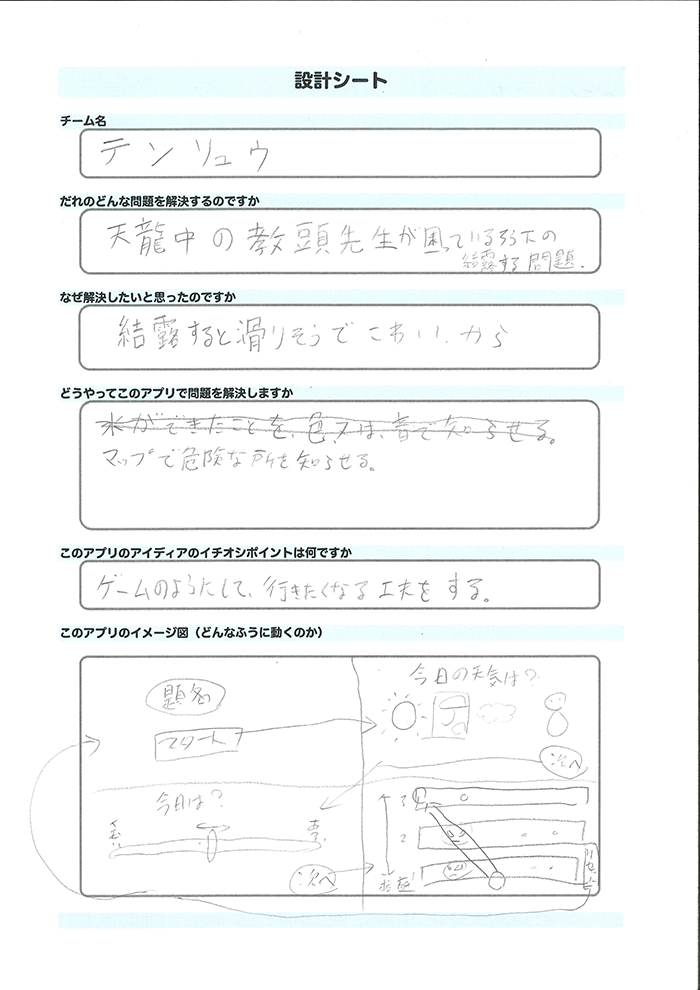 設計シート
チーム名
テンリュウ
だれのどんな問題を解決するのですか
天龍中の教頭先生が困っているろう下の
結露する問題.
なぜ解決したいと思ったのですか
結露すると滑りそうでこわい.から
どうやってこのアプリで問題を解決しますか
水ができたことを、色、又は、音で知らせる。
マップで危険な所を知らせる。
このアプリのアイディアのイチオシポイントは何ですか
ゲームのようにして、行きたくなる工夫をする。
このアプリのイメージ図（どんなふうに動くのか）
題名
スタート
今日の天気は?
次へ
今日は?
さむい
あつい
次へ
3
2
リセット